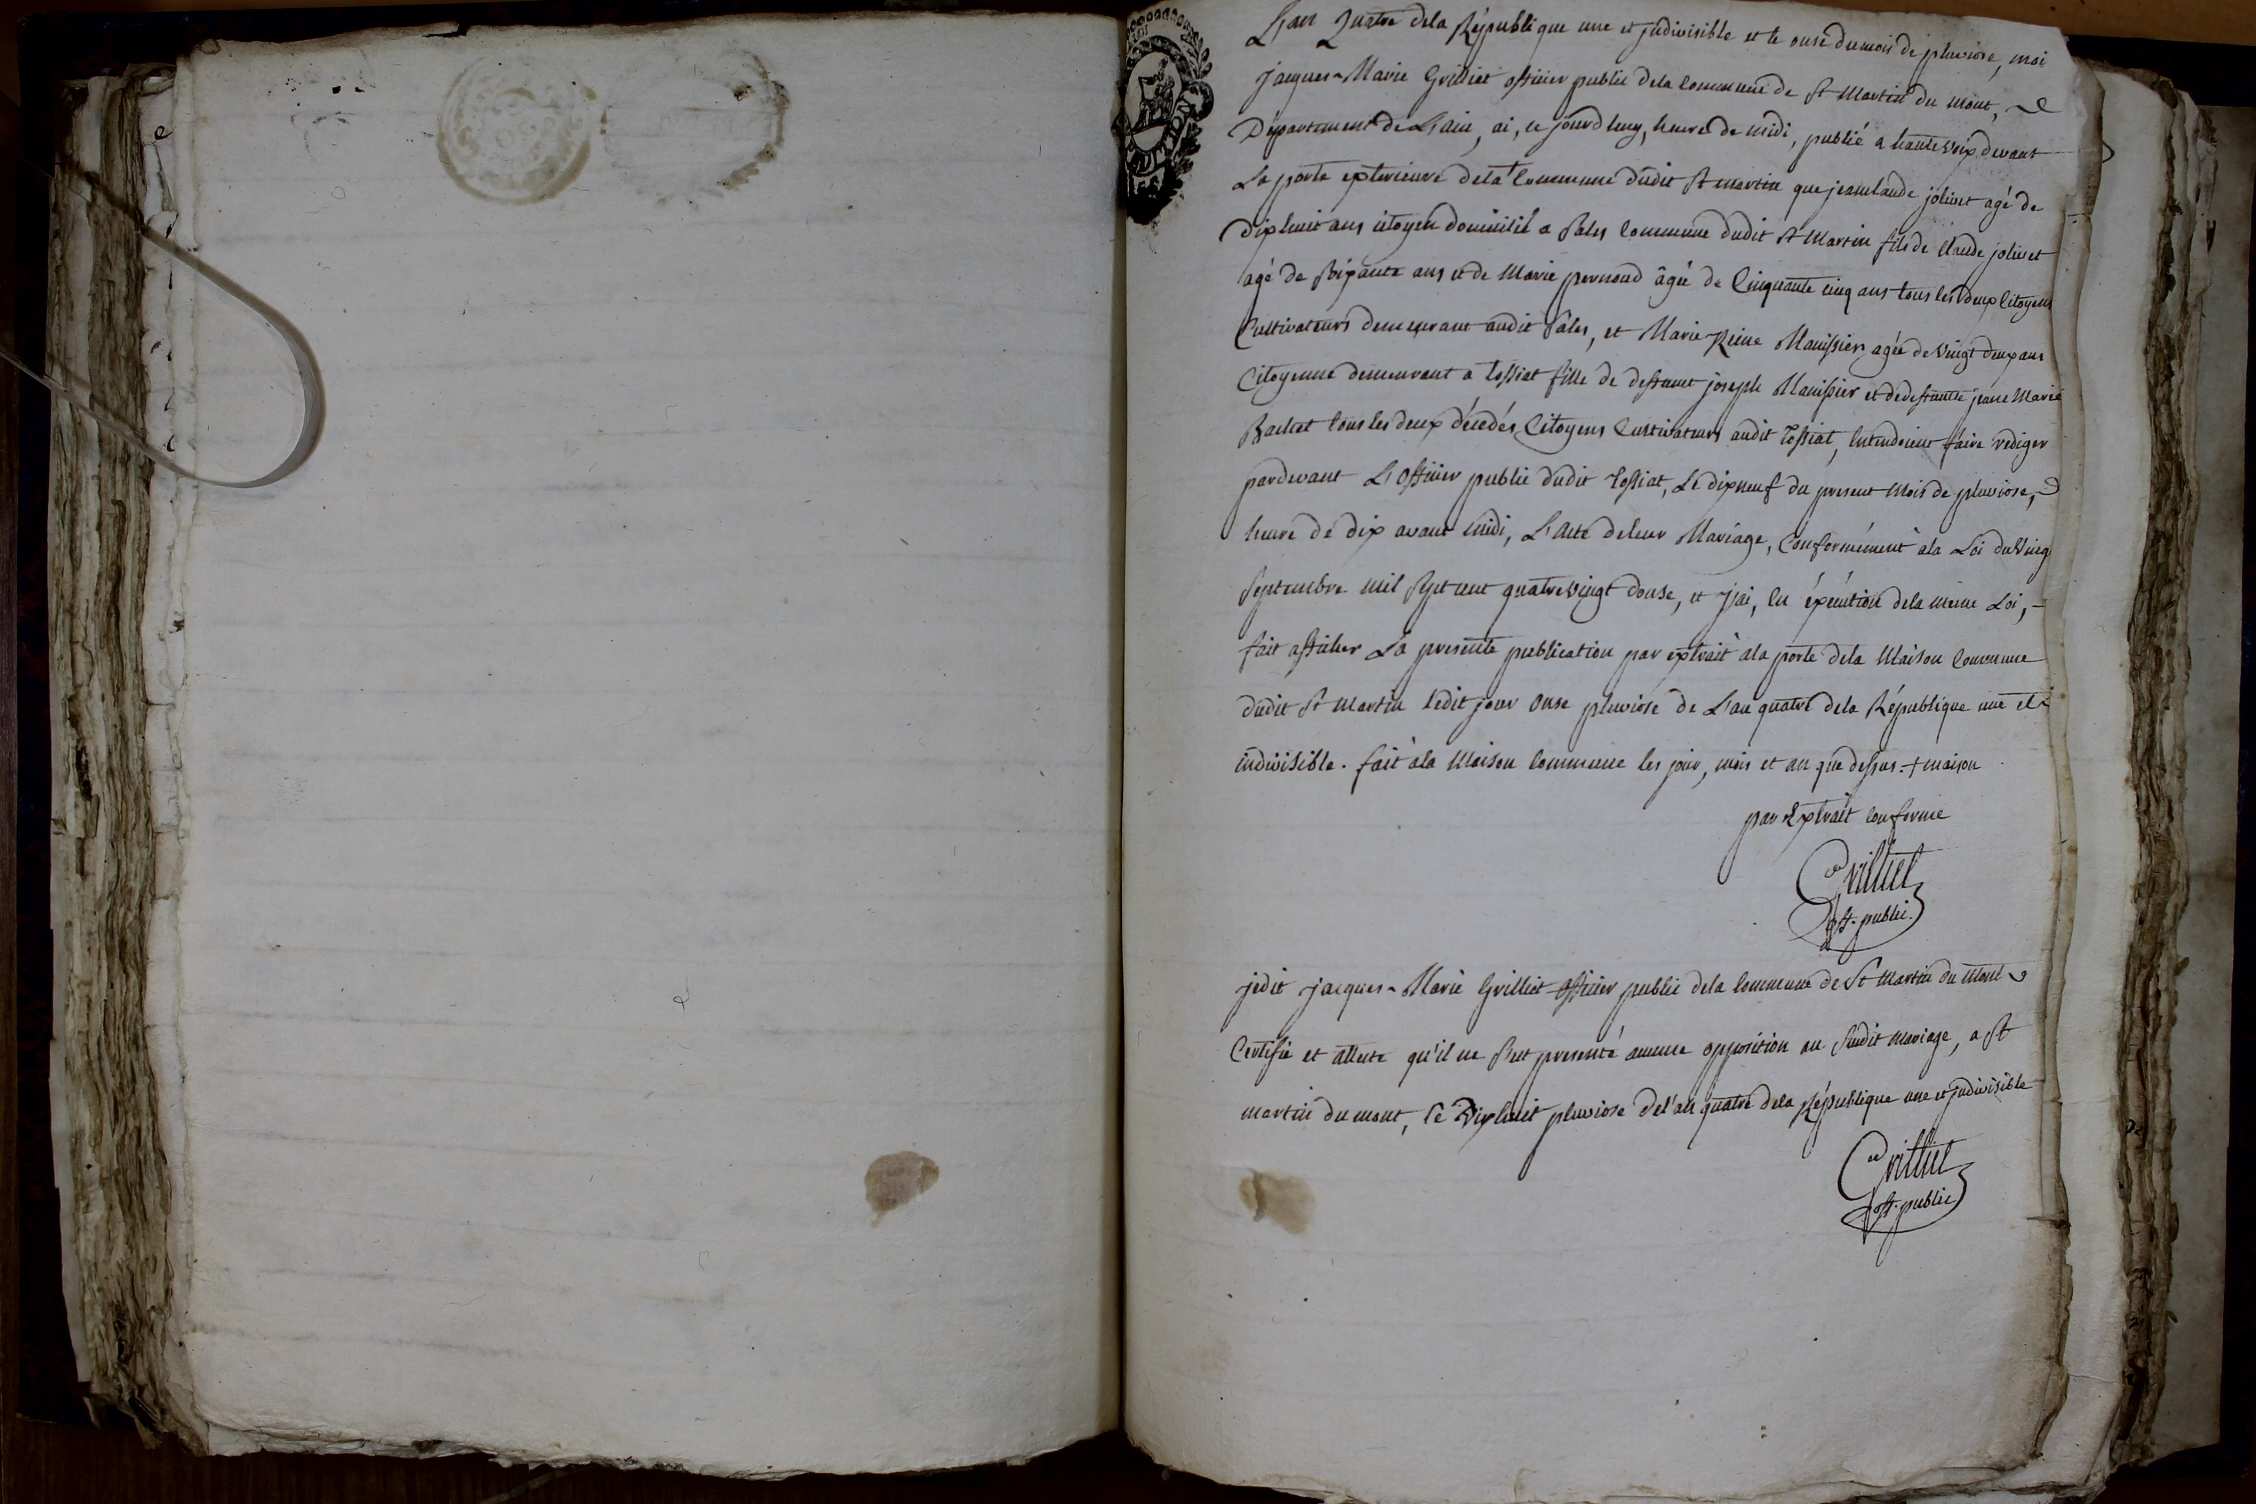 L'an Quatre dela République une et jndivisible et le onse dumois de pluviose, moi
jacques-Marie Grilliet officier public dela commune de St Martin du mont,
Département de L'ain, ai, ce jourdhuy, heure de midi, publié a haute voix devant
La porte exterieure dela + Commune dudit St martin que jeanclaude jolivet agé de
Dixhuit ans citoyen domicilié a Sales commune dudit St Martin fils de claude jolivet
agé de Soixante ans et de Marie pernoud âgée de Cinquante cinq ans tous les deux Citoyens
Cultivateurs demeurant audit Sâles, et Marie Reine Manissier agée de vingt deux ans
Citoyenne demeurant a tossiat fille de deffunt joseph Manissier et dedeffunte jeane Marie
Bachet tous les deux décedés Citoyens Cultivateurs audit Tossiat, Entendoient faire rediger
pardevant L'officier public dudit Tossiat, Le dixneuf du present Mois de pluviose,
heure de dix avant midi, L'acte deleur Mariage, Conformément àla Loi du vingt
Septembre mil Sept cent quatrevingt douse, et j'ai, en éxécution dela meme Loi,
fait afficher La presente publication par extrait àla porte dela Maison Commune
dudit St Martin ledit jour onse pluviose de L'an quatre dela République une et
indivisible. fait àla Maison Commune les jour, mois et an que dessus. + maison
par Extrait conforme
Grilliet
off. public.
jedit jacques-Marie Grilliet officier public dela Commune de St Martin du Mont
Certifie et atteste qu'il ne S'est presenté aucune opposition au Susdit mariage, a St
martin du mont, Le Dixhuit pluviose del'an quatre dela République une et jndivisible
Grilliet
off. public